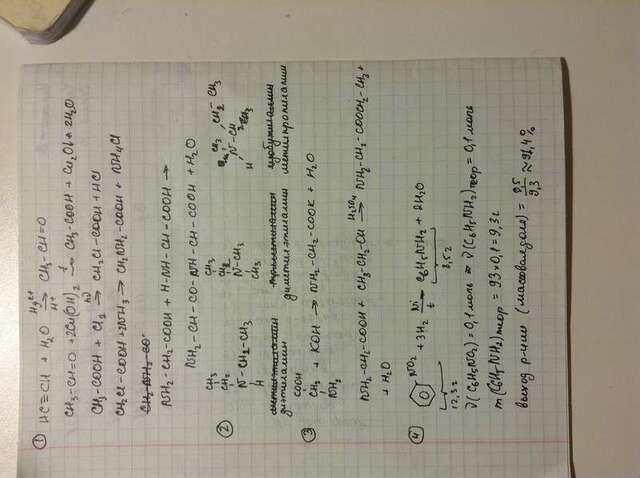 ① HC≡CH + H₂O →(Hg²⁺, H⁺) CH₃-CH=O
CH₃-CH=O + 2Cu(OH)₂ →(t) CH₃-COOH + Cu₂O↓ + 2H₂O
CH₃-COOH + Cl₂ → CH₂Cl-COOH + HCl
CH₂Cl-COOH + 2NH₃ → CH₂NH₂-COOH + NH₄Cl
NH₂-CH₂-COOH + H-NH-CH-COOH →
NH₂-CH-CO-NH-CH-COOH + H₂O
②
CH₃ CH₂ N-CH₂-CH₃ H
CH₃ CH₂ N-CH₃ CH₃
диэтиламин диметилэтиламин метилпропиламин
③ COOH CH₂ NH₂ + KOH → NH₂-CH₂-COOK + H₂O
NH₂-CH₂-COOH + CH₃-CH₂-OH →(H₂SO₄) NH₂-CH₂-COOCH₂-CH₃ +
+ H₂O
④ NO₂ + 3H₂ →(Ni, t) C₆H₅NH₂ + 2H₂O
12,3г 8,5г
ν(C₆H₅NO₂) = 0,1 моль ⇒ ν(C₆H₅NH₂)теор = 0,1 моль
m(C₆H₅NH₂)теор = 93×0,1 = 9,3г
выход р-ции (массовая доля) = 8,5/9,3 ≈ 91,4%